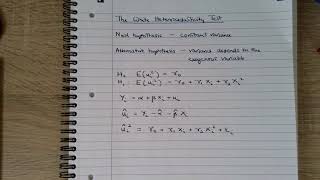 The White Heteroscedasticity Test
Null hypothesis - constant variance
Alternative hypothesis - variance depends on the
exogenous variable
H₀ E(uᵢ²) = γ₀
H₁ E(uᵢ²) = γ₀ + γ₁ xᵢ + γ₂ xᵢ²
Yᵢ = α + βxᵢ + uᵢ
ûᵢ = Yᵢ - α̂ - β̂ xᵢ
ûᵢ² = γ₀ + γ₁ xᵢ + γ₂ xᵢ² + εᵢ